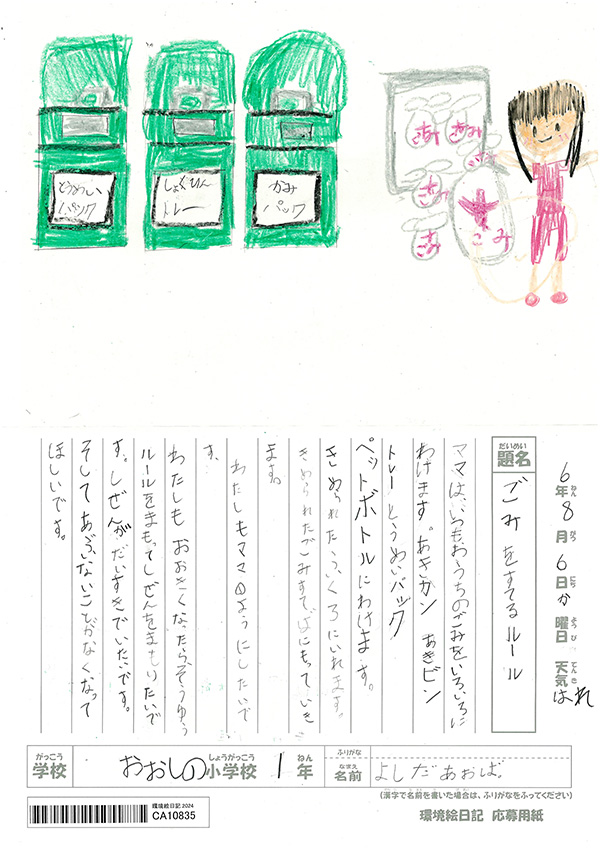 とうめい
パック
しょくひん
トレー
かみ
パック
ごみ
ごみ
ごみ
ごみ
ごみ
6年8月6日か曜日 天気はれ
ねん
がつ
にち
ようび
てんき
だいめい
題名
ごみをすてるルール
ママは、いつもおうちのごみをいろいろに
わけます。あきカン あきビン
トレー とうめいパック
ペットボトルにわけます。
きめられたふくろにいれます。
きめられたごみすてばにもっていき
ます。
わたしもママのようにしたいで
す。
わたしも おおきくなったらそうゆう
ルールをまもってしぜんをまもりたいで
す。しぜんがだいすきでいたいです。
そして あぶないことがなくなって
ほしいです。
がっこう
学校
おおしの小学校
しょうがっこう
1年
ねん
ふりがな
なまえ
名前
よしだあおば。
(漢字で名前を書いた場合は、ふりがなをふってください)
環境絵日記2024
CA10835
環境絵日記 応募用紙